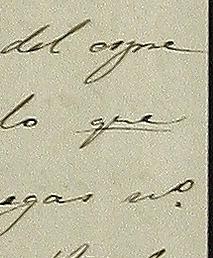 del oyne
lo que
egas nº.